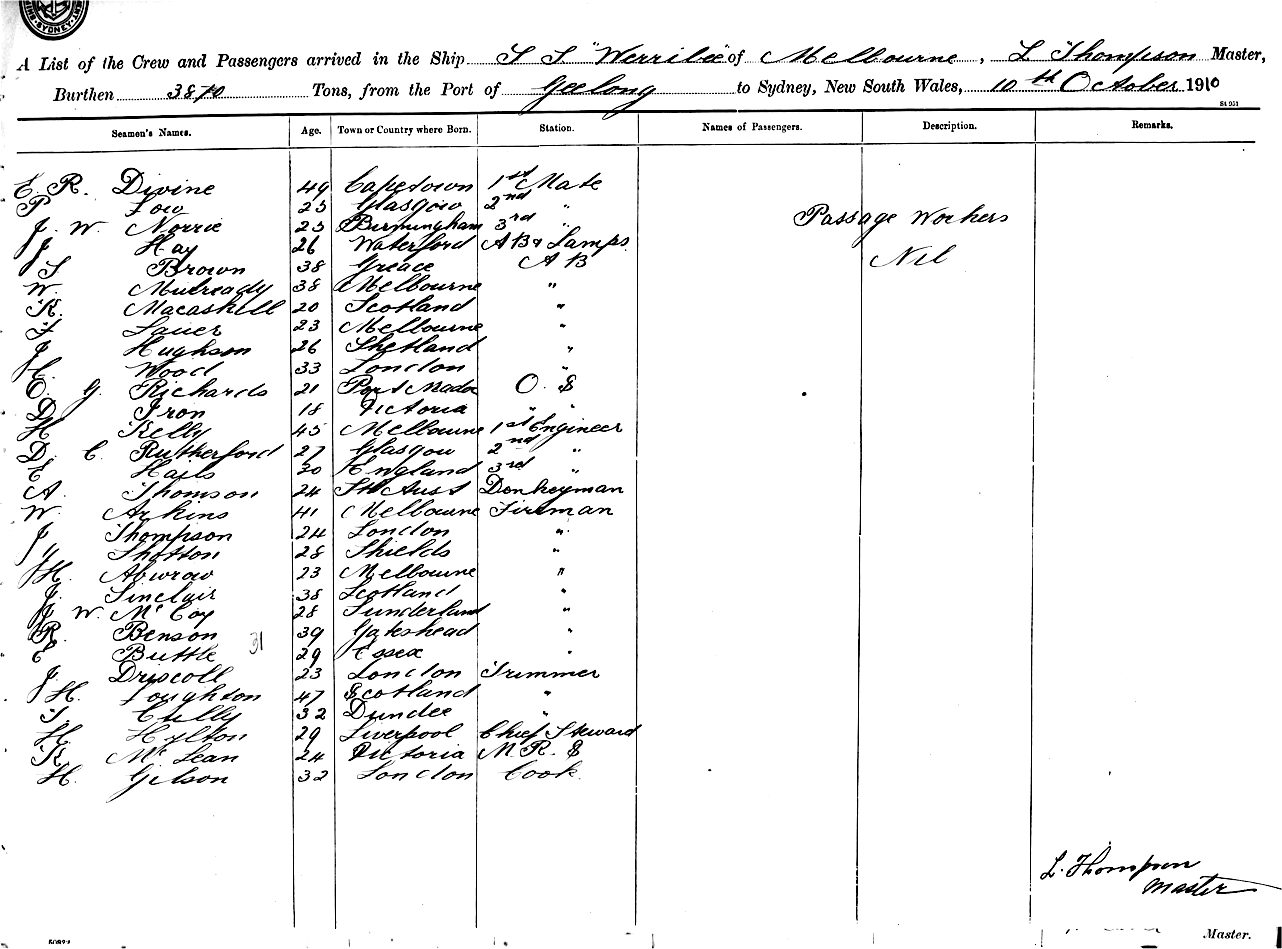 SYDNEY
A List of the Crew and Passengers arrived in the Ship S S "Werribee" of Melbourne, L Thompson Master,
Burthen 3870 Tons, from the Port of Geelong to Sydney, New South Wales, 10th October 1910
St 951
Seamen's Names. Age. Town or Country where Born. Station. Names of Passengers. Description. Remarks.
E. R. Divine 49 Capetown 1st Mate
P Low 25 Glasgow 2nd "
J. W Norrie 25 Birmingham 3rd " Passage Workers
J Hay 26 Waterford AB & Lamps
S Brown 38 Greace A B Nil
W. Mulready 38 Melbourne "
K. Macaskill 20 Scotland "
F Lauer 23 Melbourne "
J Hughson 26 Shetland "
H. Wood 33 London "
E. G. Richards 21 Port Madoc O. S
D Iron 18 Victoria " "
H Kelly 45 Melbourne 1st Engineer
D. C. Rutherford 27 Glasgow 2nd "
E Hails 30 England 3rd "
A. Thomson 24 Sth Aust Donkeyman
W. Arkins 41 Melbourne Fireman
J Thompson 24 London "
Shotton 28 Shields "
H. 23 Melbourne "
J. Sinclair 38 Scotland "
J W. McCoy 28 Sunderland "
R. Benson 31 39 Gateshead "
E Buttle 29 Essex "
J. Driscoll 23 London Trimmer
H. Loughton 47 Scotland "
T. Cully 32 Dundee "
H Hylton 29 Liverpool Chief Steward
K. McLean 24 Victoria M. R. S
H. Gelson 32 London Cook
L. Thompson
Master
Master.